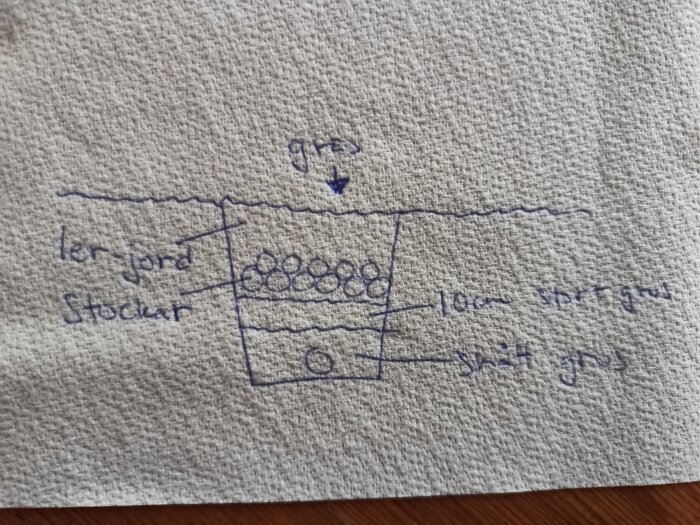 gräs
ler-jord
Stockar
10cm stort grus
smått grus